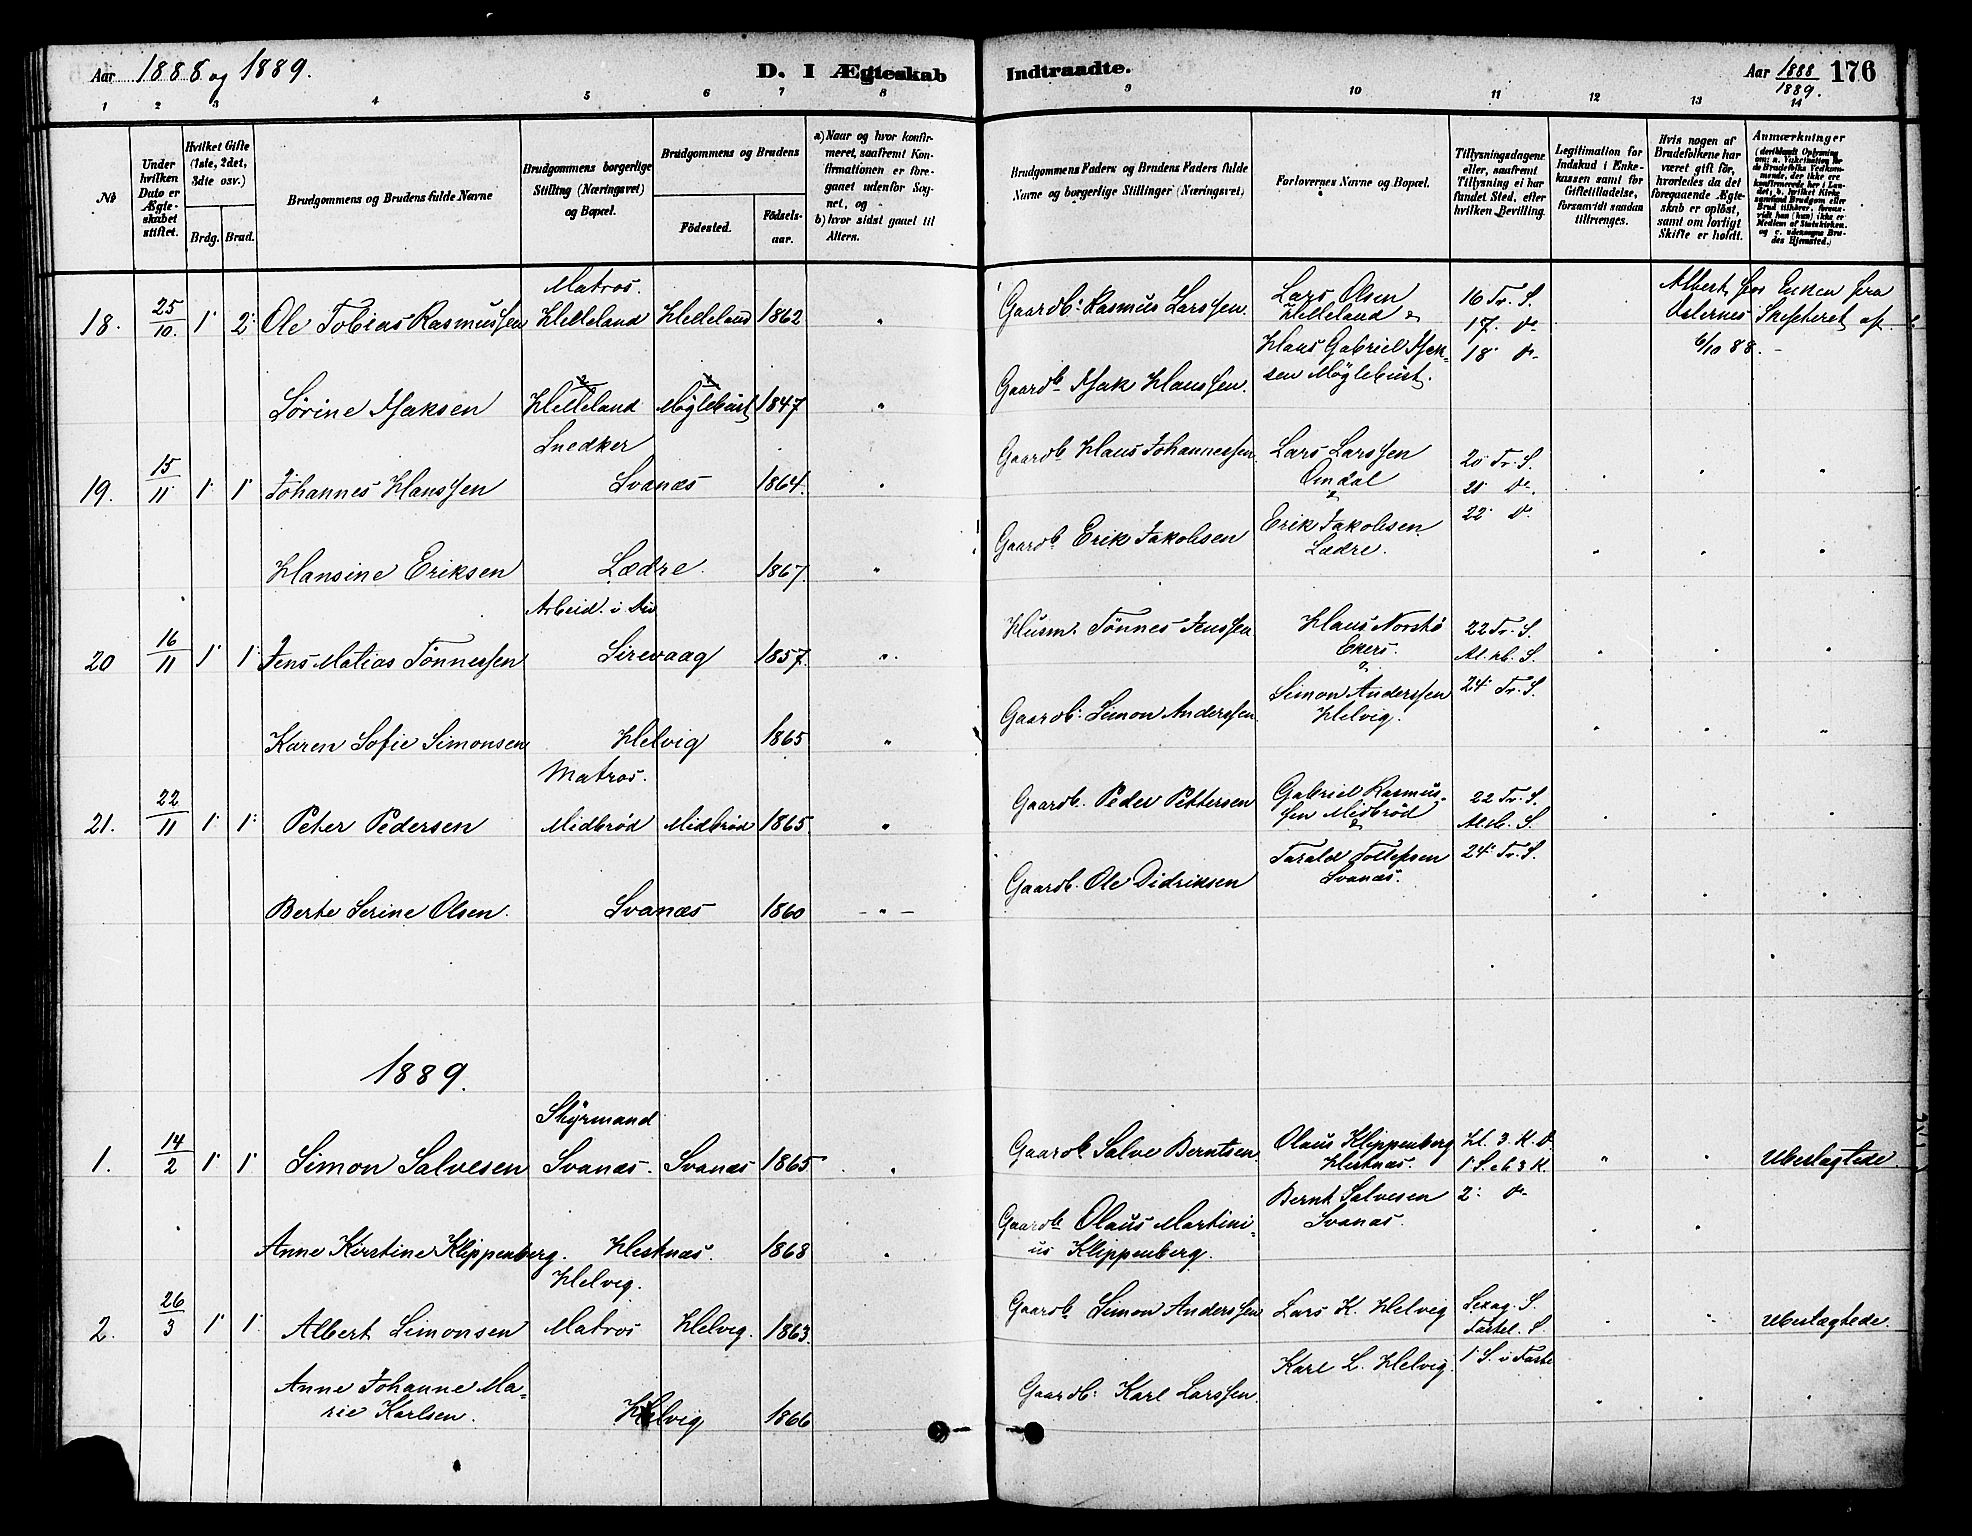 Aar 1888 og 1889.
D. I Ægteskab
Indtraadte.
Aar 1888/1889.
176
1 2 3 4 5 6 7 8 9 10 11 12 13 14
No
Under hvilken Dato er Ægteskabet stiftet.
Hvilket Gifte (1ste, 2det, 3die osv.)
Brdg. Brud.
Brudgommens og Brudens fulde Navne
Brudgommens borgerlige Stilling (Næringsvei) og Bopæl.
Brudgommens og Brudens
Födested.
Födselsaar.
a) Naar og hvor konfirmeret, saafremt Konfirmationen er foregaaet udenfor Sognet, og
b) hvor sidst gaaet til Alters.
Brudgommens Faders og Brudens Faders fulde Navne og borgerlige Stillinger (Næringsvei)
Forlovernes Navne og Bopæl.
Tillysningsdagene eller, saafremt Tillysning ei har fundet Sted, efter hvilken Bevilling.
Legitimation for Indskud i Enkekassen samt for Giftetilladelse, forsaavidt saadan tiltrænges.
Hvis nogen af Brudefolkene har været gift før, hvorledes da det foregaaende Ægteskab er opløst, samt om lovligt Skifte er holdt.
Anmærkninger
Matros.
18. 25/10. 1 2: Ole Tobias Rasmussen Helleland Helleland 1862 "
Gaardb: Rasmus Larssen. Lars Olsen Helleland &
16 Tr. S.
17. do
18 do
Albert Enken fra
Osternes Skifteret af
6/10 88. -
Sørine Isaksen Helleland Møglebust 1847 "
Gaardb Isak Hanssen. Hans Gabriel Isaksen Møglebust.
Snedker
19. 15/11 1. 1 Johannes Hanssen Svanæs 1864. "
Gaardb Hans Johannessen. Lars Larssen Omdal &
20 Tr. S.
21 do.
22 do.
Hansine Eriksen Lædre. 1867. "
Gaardb Erik Jakobsen Erik Jakobsen Lædre.
Arbeid.
20 16/11 1 1 Jens Matias Tønnessen Sirevaag 1857. "
Husm. Tønnes Jenssen Hans Norstø Ekers. &
22 Tr. S.
24: Tr. S.
Karen Sofie Simonsen Helvig 1865 "
Gaardb: Simon Anderssen. Simon Anderssen Helvig.
Matros.
21. 22/11 1. 1: Peter Pedersen Midbrød Midbrød 1865 "
Gaardb. Peder Pettersen Gabriel Rasmussen Midbrød &
22 Tr. S.
24: Tr. S.
Berte Serine Olsen. Svanæs 1860 - " -
Gaardb. Ole Didriksen Tarald Tollefsen Svanæs.
1889.
Styrmand
1. 14/2 1. 1 Simon Salvesen Svanæs. Svanæs 1865 "
Gaardb Salve Berntsen. Olaus Klippenberg Hestnæs.
Hl. 3 K. D.
1 S. eft. 3 K.
2: do
Ubeslægtede
Anne Kirstine Klippenberg. Hestnæs. 1868 "
Gaardb Olaus Martinius Klippenberg. Bernt Salvesen Svanæs.
Helvig.
2. 26/3 1. 1: Albert Simonsen Matros Helvig. 1863.
Gaardb Simon Anderssen Lars K. Helvig
Sexag. S.
Fastel. S.
1 S. i Faste
Ubeslægtede.
Anne Johanne Marie Karlsen. Helvig 1866
Gaardb: Karl Larssen. Karl L. Helvig.